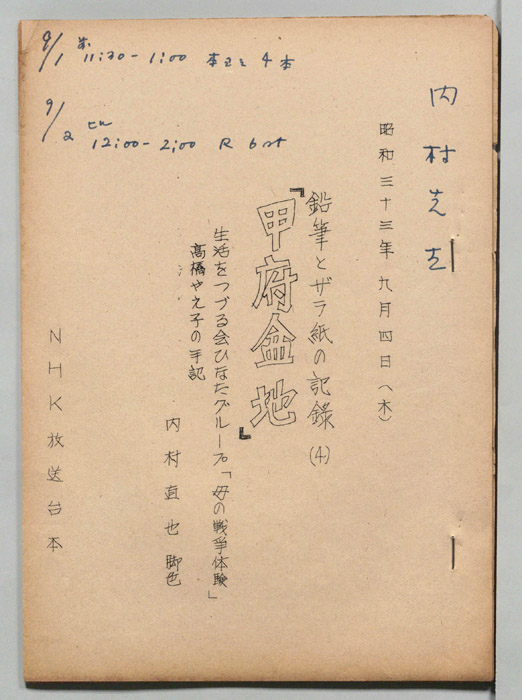 9/1 11:30-1:00 本ヨミ 4本
9/2 12:00-2:00 R 6
内村先生
昭和三十三年九月四日(木)
鉛筆とザラ紙の記録(4)
『甲府盆地』
生活をつづる会ひなたグループ「母の戦爭体験」
高橋やえ子の手記
内村直也 脚色
NHK放送台本